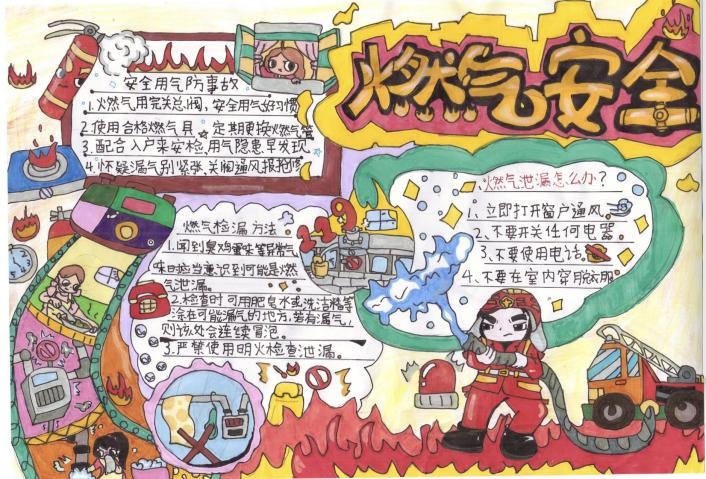 燃气安全
安全用气防事故
1.燃气用完关总阀,安全用气好习惯
2.使用合格燃气具☆定期更换燃气管
3.配合入户来安检,用气隐患早发现
4.怀疑漏气别紧张、关阀通风报抢修
燃气检漏方法。
1.闻到臭鸡蛋味等异常气
味时应当意识到可能是燃
气泄漏。
2.检查时可用肥皂水或洗洁精等
涂在可能漏气的地方,若有漏气,
则该处会连续冒泡。
3.严禁使用明火检查泄漏。
119
燃气泄漏怎么办?
1、立即打开窗户通风。
2、不要开关任何电器。
3、不要使用电话。
4、不要在室内穿脱衣服